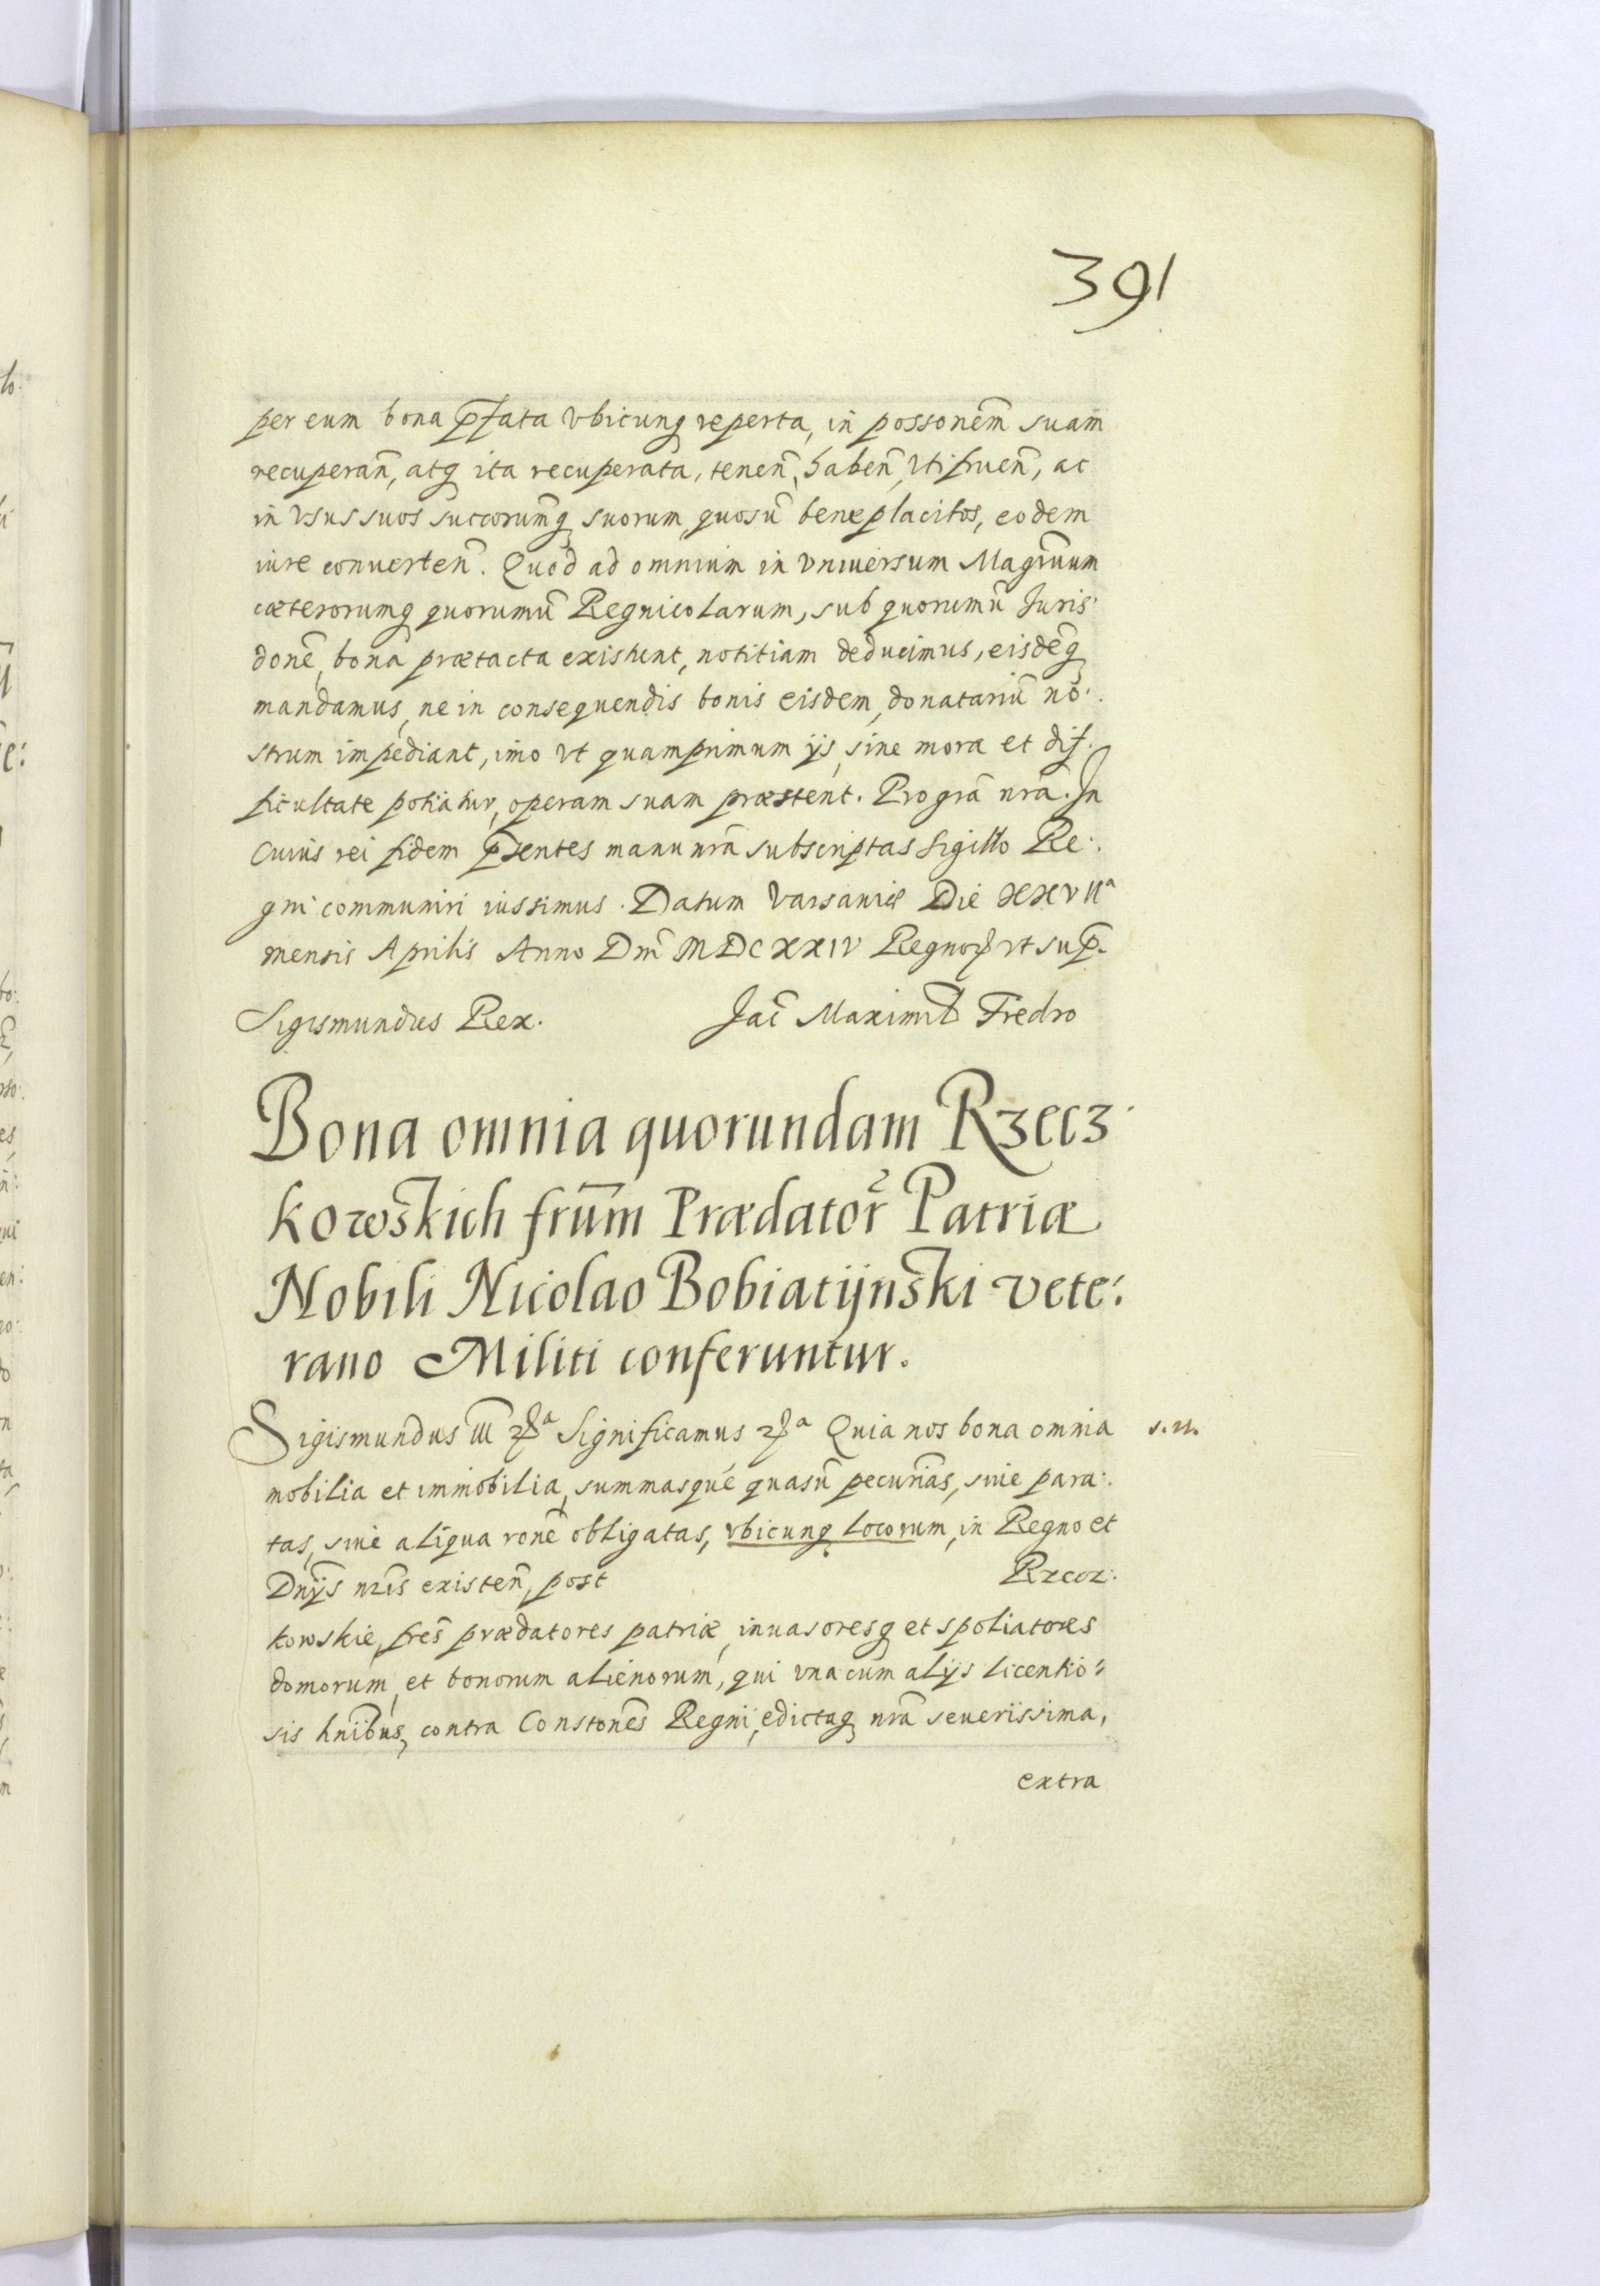 391
per eum bona p̄fata vbicunq reperta, in possonem̄ suam
recuperan̄, atq ita recuperata, tenen̄, haben̄, vtifruen̄, ac
in vsus suos succorumq suorum, quosū beneplacitos, eodem
iure conuerten̄. Quod ad omnium in vniuersum Magnum
cæterorumq quorumū Regnicolarum, sub quorumū Juris
donē, bona prætacta existunt, notitiam deducimus, eisdēq
mandamus, ne in consequendis bonis eisdem, donatariū no:
strum impediant, imo vt quamprimum ijs, sine mora et dif:
ficultate potiatur, operam suam præstent. Pro grā nrā. In
Cuius rei fidem p̄sentes manu nrā subscriptas Sigillo Re:
gni communiri iussimus. Datum Varsauiæ Die XXVIIª
mensis Aprilis Anno Dnī MDCXXIV Regnoꝝ vt sup̄.
Sigismundus Rex. Jac̄ Maximil Fredro
Bona omnia quorundam Rzecz:
kowskich frūm Prædator̄ Patriæ
Nobili Nicolao Bobiatijnski vete:
rano Militi conferuntur.
Sigismundus III Significamus Quia nos bona omnia s. n.
mobilia et immobilia, summasque quasū pecunias, siue para:
tas, siue aliqua ronē obligatas, vbicunq locorum, in Regno et
Dnijs nrīs existen̄, post Rzecz:
kowskie, frēs prædatores patriæ, inuasoresq et spoliatores
domorum, et bonorum alienorum, qui vna cum alijs licentio:
sis hnībus, contra Constonēs Regni, edictaq nrā seuerissima,
extra